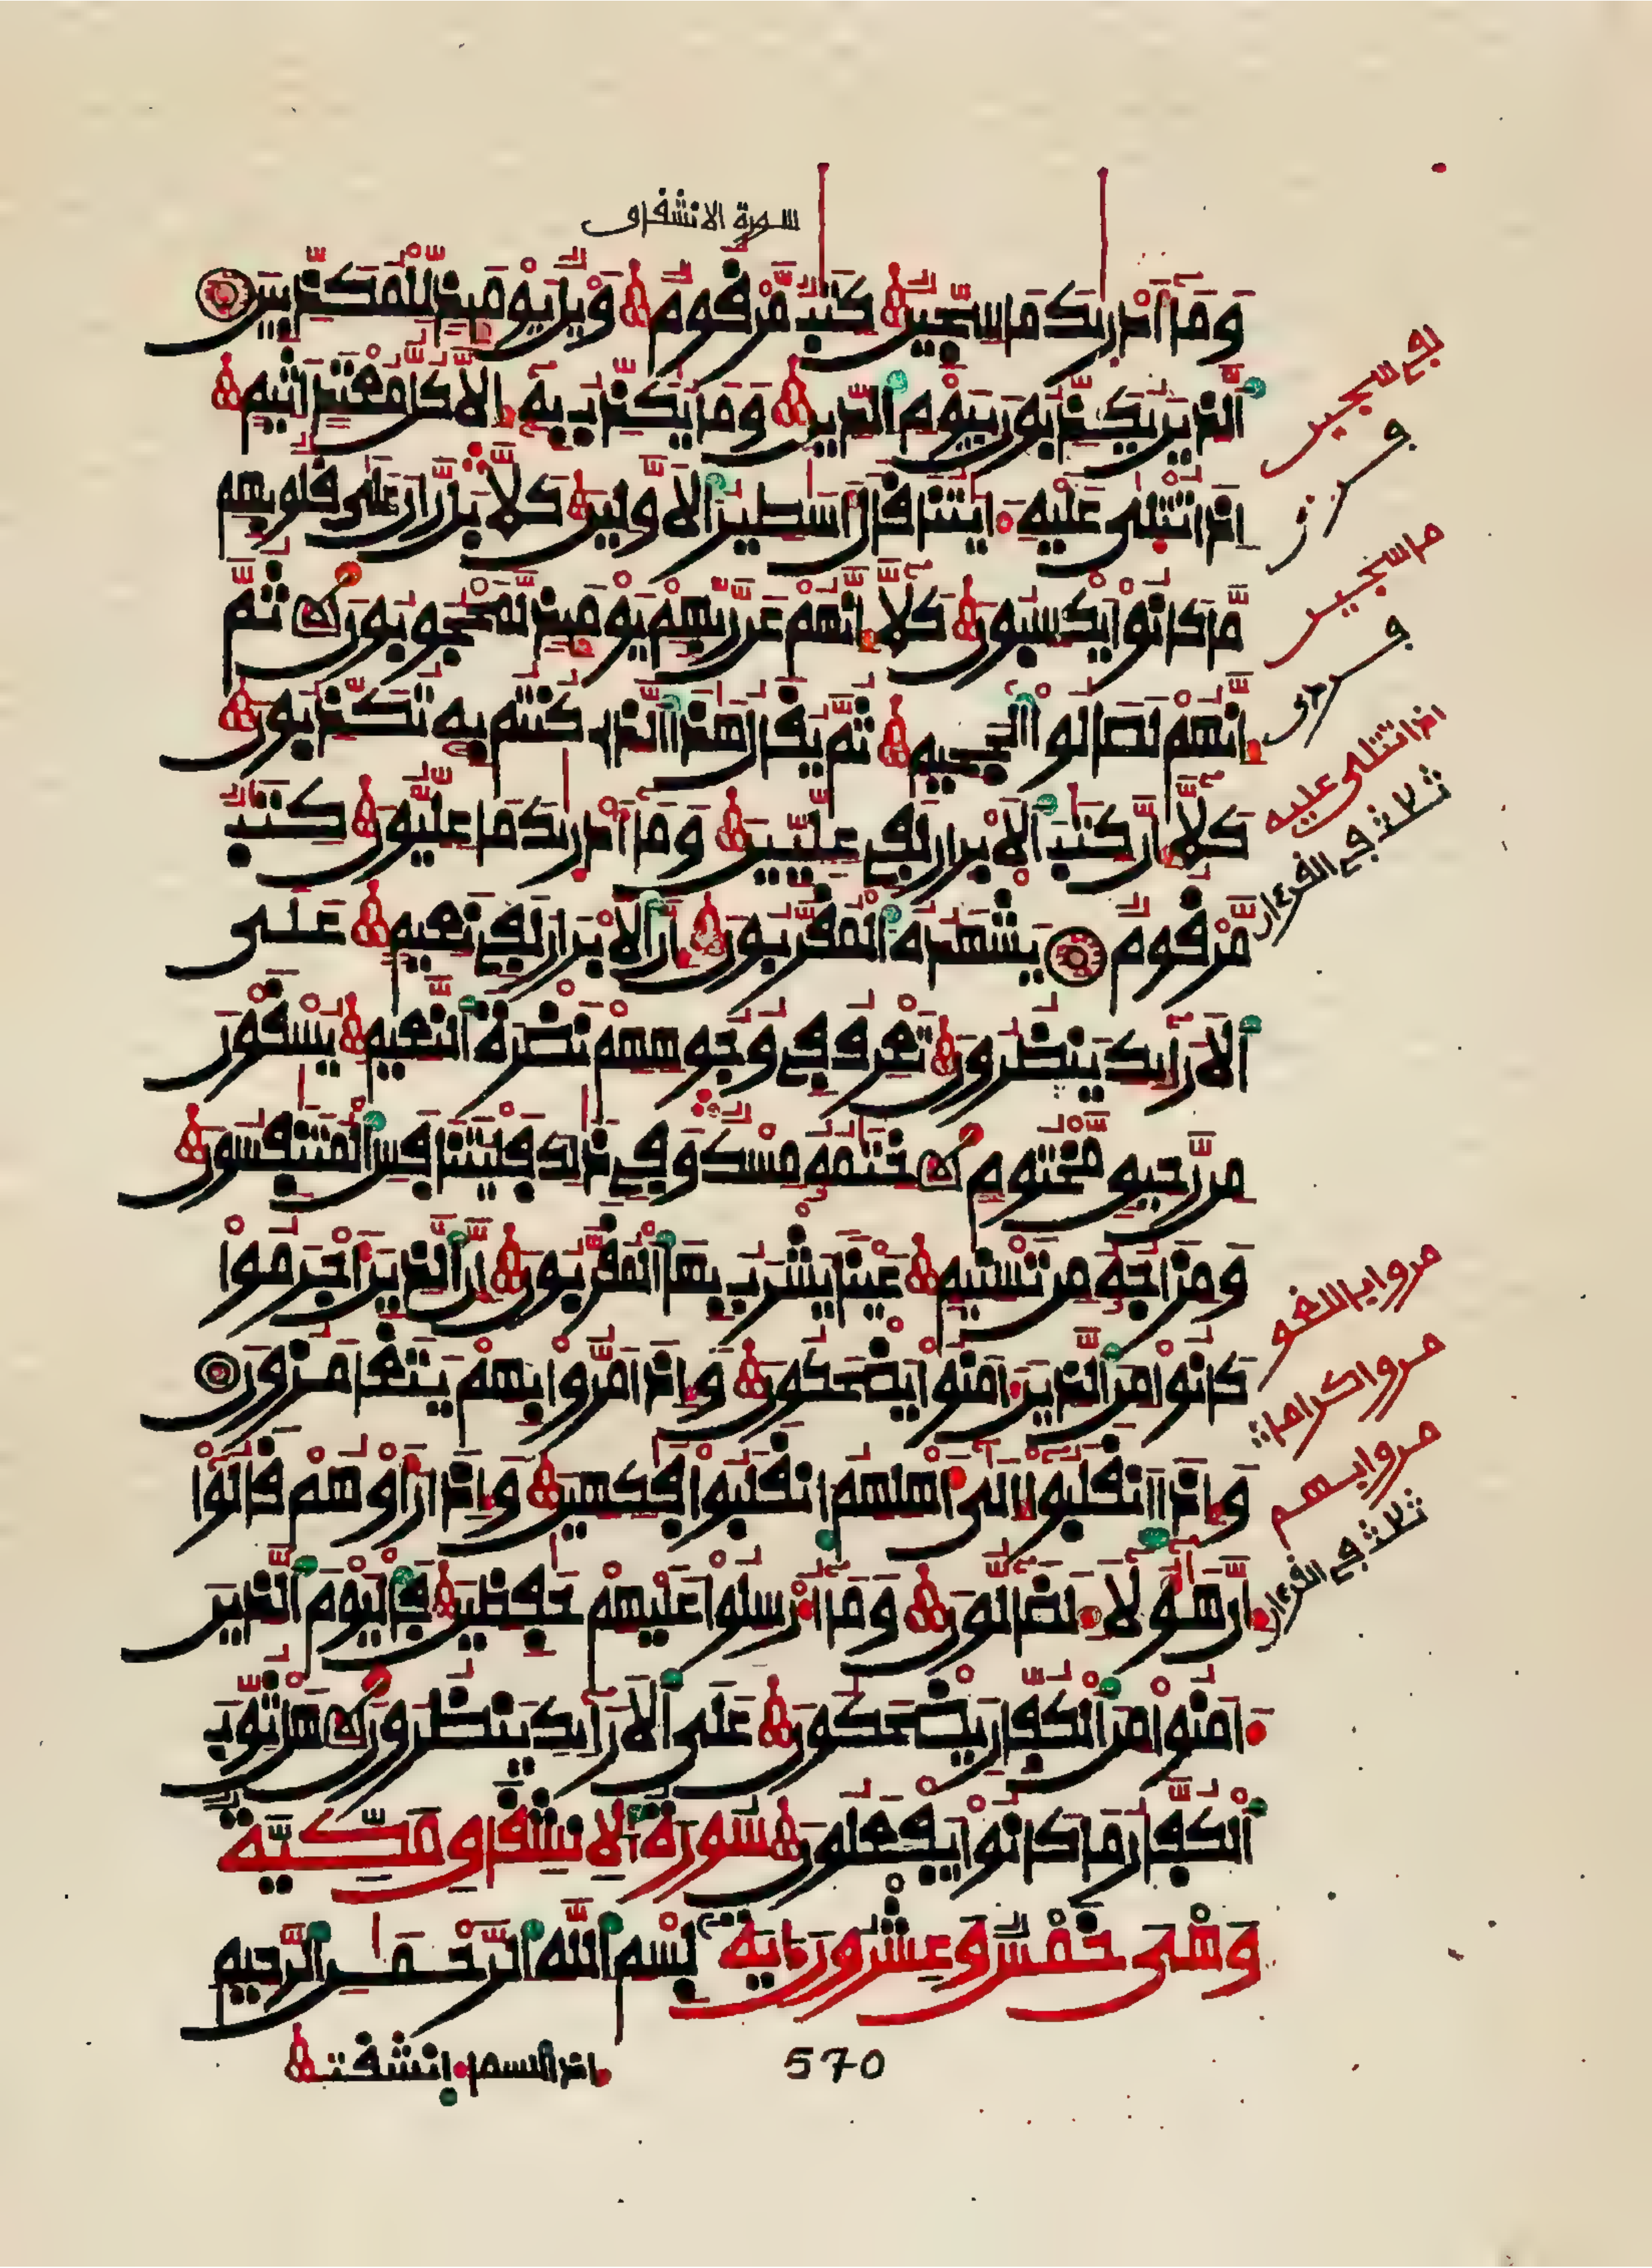 سورة الانشفاق
وَمَا أَدْرَيٰكَ مَا سِجِّينٌ كِتَٰبٌ مَّرْقُومٌ وَيْلٌ يَوْمَئِذٍ لِّلْمُكَذِّبِينَ
اَ۬لذِينَ يُكَذِّبُونَ بِيَوْمِ اِ۬لدِّينِ وَمَا يُكَذِّبُ بِهِۦ إِلَّا كُلُّ مُعْتَدٍ اَثِيمٍ
اِذَا تُتْلَىٰ عَلَيْهِ ءَايَٰتُنَا قَالَ أَسَٰطِيرُ اُ۬لَاوَّلِينَ كَلَّا بَل رَّانَ عَلَىٰ قُلُوبِهِم
مَّا كَانُواْ يَكْسِبُونَ كَلَّا إِنَّهُمْ عَن رَّبِّهِمْ يَوْمَئِذٍ لَّمَحْجُوبُونَ ثُمَّ
إِنَّهُمْ لَصَالُواْ اُ۬لْجَحِيمِ ثُمَّ يُقَالُ هَٰذَا اَ۬لذِي كُنتُم بِهِۦ تُكَذِّبُونَ
كَلَّا إِنَّ كِتَٰبَ اَ۬لَابْرَارِ لَفِي عِلِّيِّينَ وَمَا أَدْرَيٰكَ مَا عِلِّيُّونَ كِتَٰبٌ
مَّرْقُومٌ يَشْهَدُهُ اُ۬لْمُقَرَّبُونَ إِنَّ اَ۬لَابْرَارَ لَفِي نَعِيمٍ عَلَى
اَ۬لَارَآئِكِ يَنظُرُونَ تَعْرِفُ فِي وُجُوهِهِمْ نَضْرَةَ اَ۬لنَّعِيمِ يُسْقَوْنَ
مِن رَّحِيقٍ مَّخْتُومٍ خِتَٰمُهُۥ مِسْكٌ وَفِي ذَٰلِكَ فَلْيَتَنَافَسِ اِ۬لْمُتَنَٰفِسُونَ
وَمِزَاجُهُۥ مِن تَسْنِيمٍ عَيْنًا يَشْرَبُ بِهَا اَ۬لْمُقَرَّبُونَ إِنَّ اَ۬لذِينَ أَجْرَمُواْ
كَانُواْ مِنَ اَ۬لذِينَ ءَامَنُواْ يَضْحَكُونَ وَإِذَا مَرُّواْ بِهِمْ يَتَغَامَزُونَ
وَإِذَا اَ۪نقَلَبُواْ إِلَىٰ أَهْلِهِمُ اُ۪نقَلَبُواْ فَٰكِهِينَ وَإِذَا رَأَوْهُمْ قَالُواْ
إِنَّ هَٰؤُلَآءِ لَضَالُّونَ وَمَا أُرْسِلُواْ عَلَيْهِمْ حَٰفِظِينَ فَالْيَوْمَ اَ۬لذِينَ
ءَامَنُواْ مِنَ اَ۬لْكُفَّارِ يَضْحَكُونَ عَلَى اَ۬لَارَآئِكِ يَنظُرُونَ هَلْ ثُوِّبَ
اَ۬لْكُفَّارُ مَا كَانُواْ يَفْعَلُونَ سُورَةُ الِانشِقَاقِ مَكِّيَّةٌ
وَهْيَ خَمْسٌ وَعِشْرُونَ ءَايَةً بِسْمِ اِ۬للَّهِ اِ۬لرَّحْمَٰنِ اِ۬لرَّحِيمِ
إذا السماء انشقت
570
لفي سجين
ما سجين
اذا تتلى عليه
ثلاث في القرءان
مروا باللغو
مروا كراما
مروا بهم
ثلاث في القرءان